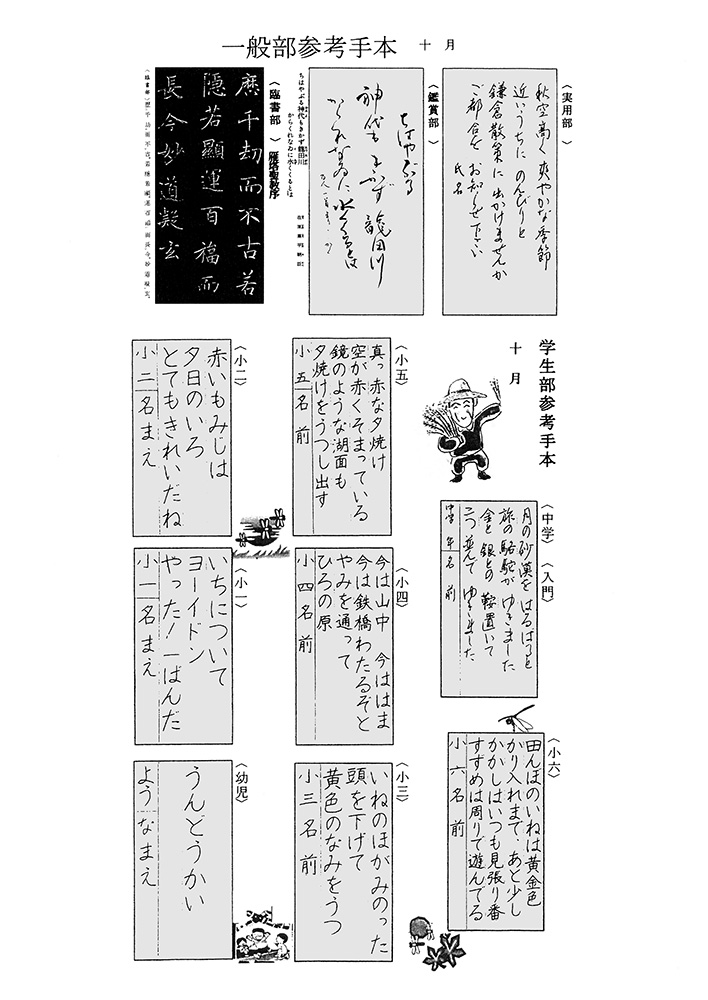 一般部参考手本 十月
〈実用部〉
秋空高く爽やかな季節
近いうちに のんびりと
鎌倉散策に出かけませんか
ご都合を お知らせ下さい
氏名
〈鑑賞部〉
ちはやふる
神代もきかず龍田川
からくれなゐに水くくるとは
ちはやぶる神代もきかず龍田川
からくれなゐに水くくるとは
〈臨書部〉 雁塔聖教序
歴千劫而不古若
隠若顕運百福而
長今妙道凝玄
学生部参考手本
十月
〈中学〉 〈入門〉
月の砂漠を はるばると
旅の駱駝が ゆきました
金と銀との 鞍置いて
二つ並んで ゆきました
中学 年 名前
〈小六〉
田んぼのいねは黄金色
かり入れまで、あと少し
かかしはいつも見張り番
すずめは周りで遊んでる
小六 名前
〈小五〉
真っ赤な夕焼け
空が赤くそまっている
鏡のような湖面も
夕焼けをうつし出す
小五 名前
〈小四〉
今は山中 今ははま
今は鉄橋わたるぞと
やみを通って
ひろの原
小四 名前
〈小三〉
いねのほがみのった
頭を下げて
黄色のなみをうつ
小三 名前
〈小二〉
赤いもみじは
夕日のいろ
とてもきれいだね
小二 名まえ
〈小一〉
いちについて
ヨーイドン
やった!一ばんだ
小一 名まえ
〈幼児〉
うんどうかい
よう なまえ